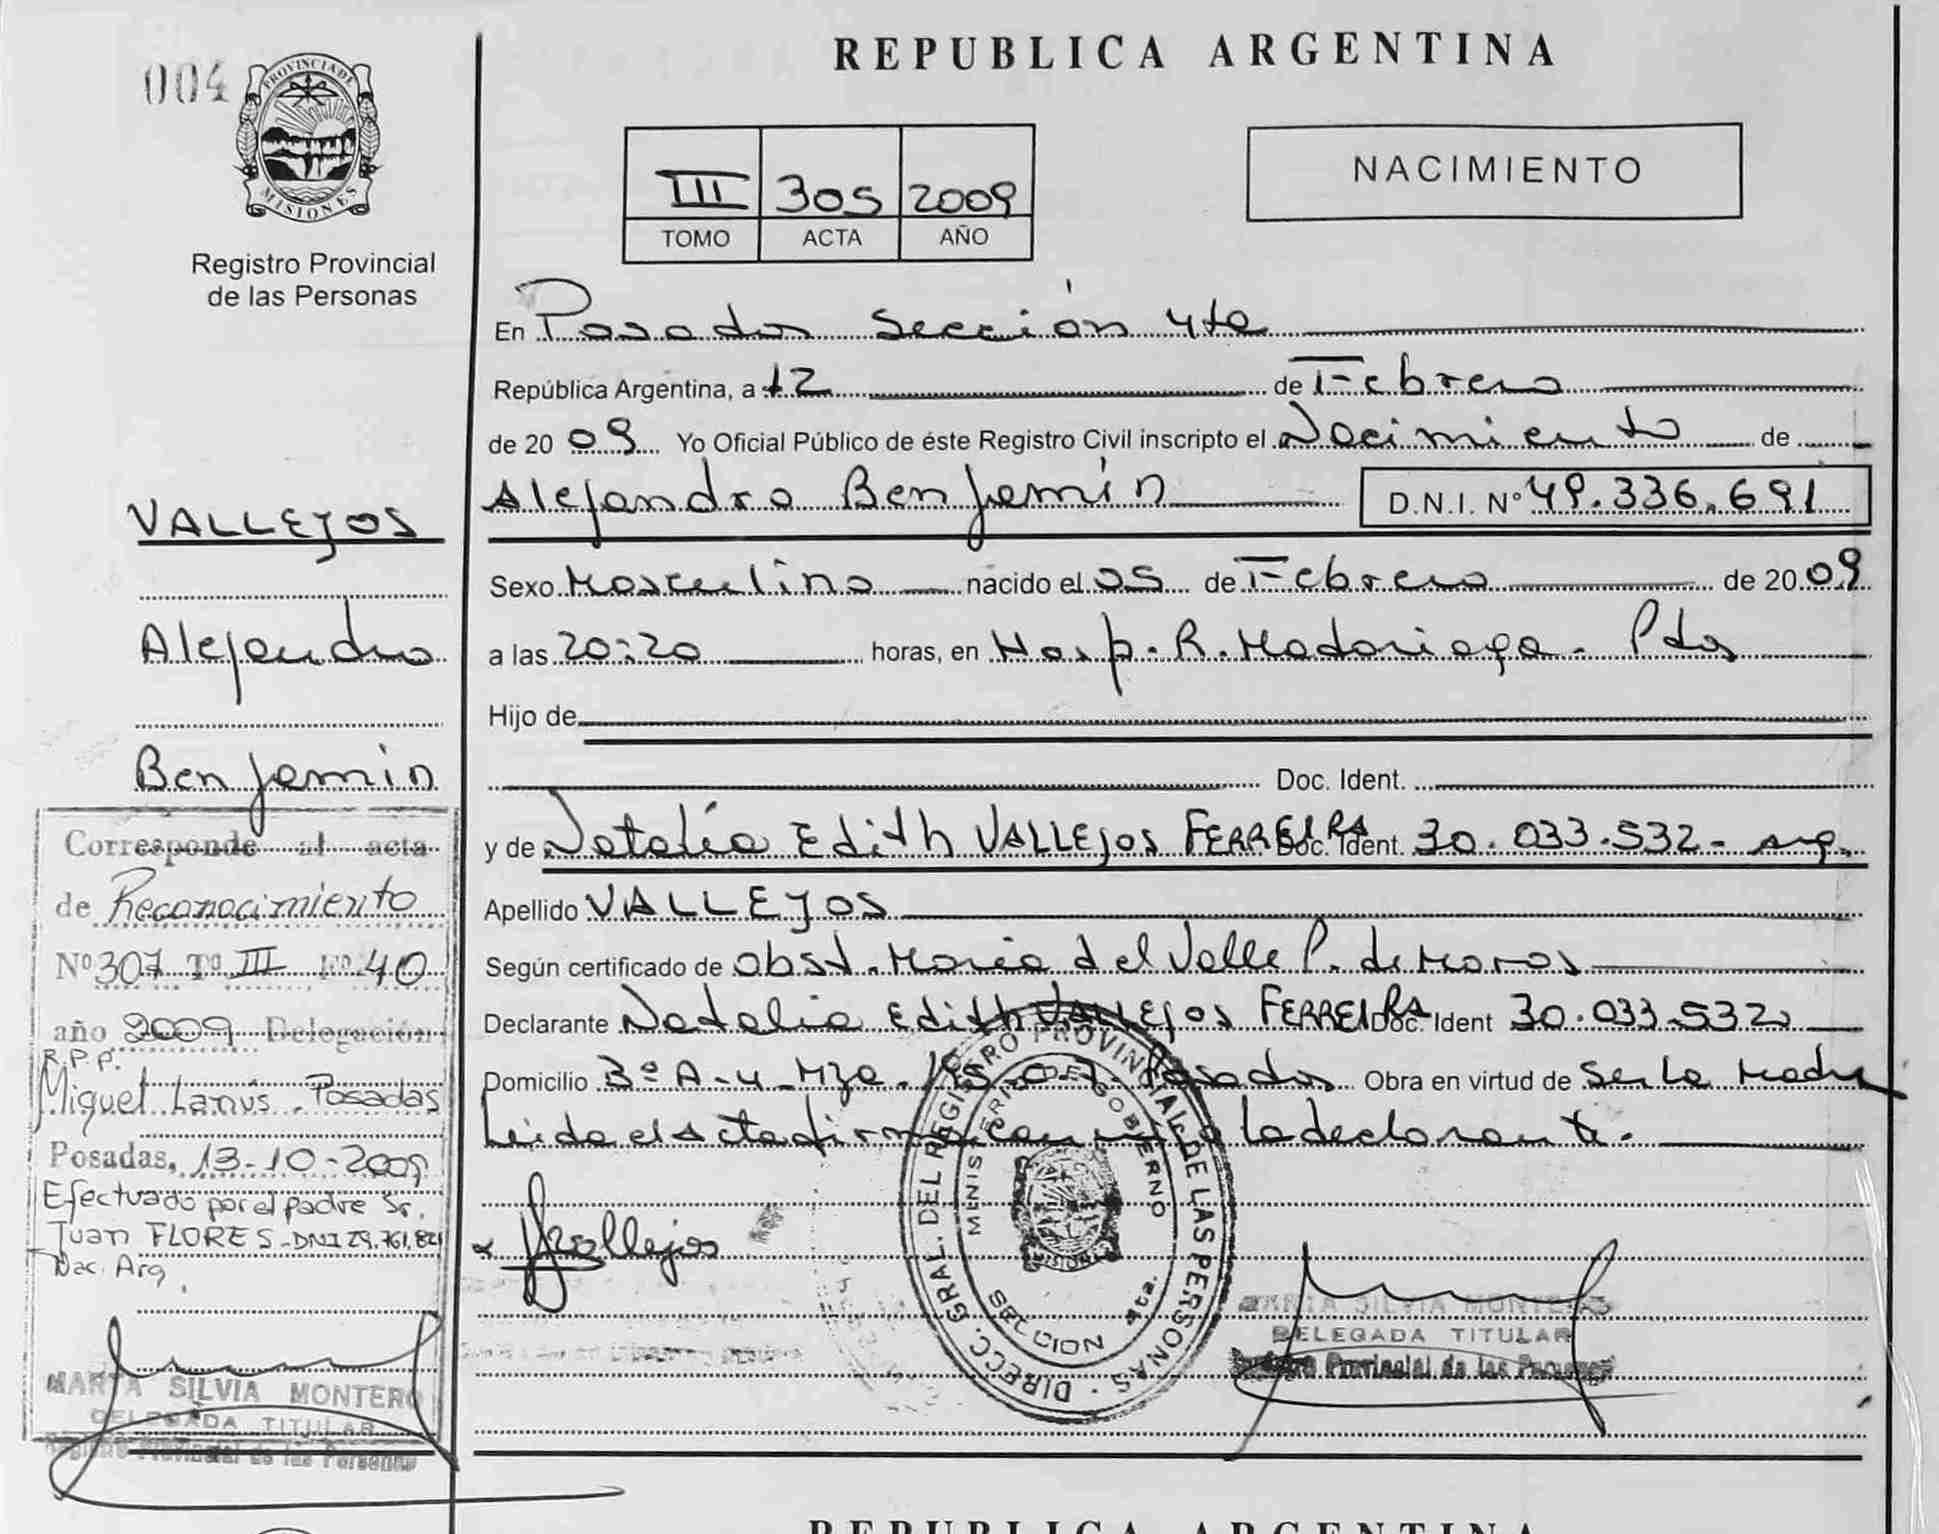 004
PROVINCIA DE
MISIONES
Registro Provincial
de las Personas
REPUBLICA ARGENTINA
III 305 2009
TOMO ACTA AÑO
NACIMIENTO
En Posadas Sección 4ta
República Argentina, a 12 de Febrero
de 2009 Yo Oficial Público de éste Registro Civil inscripto el Nacimiento de
Alejandro Benjamín D.N.I. Nº 49.336.691
Sexo Masculino nacido el 05 de Febrero de 2009
a las 20:20 horas, en Hosp. R. Madariaga - Pdas
Hijo de
Doc. Ident.
y de Natalia Edith VALLEJOS FERREIRA Doc. Ident. 30.033.532 - arg.
Apellido VALLEJOS
Según certificado de obst. María del Valle P. de Moros
Declarante Natalia Edith VALLEJOS FERREIRA Doc. Ident 30.033.532
Domicilio 3º A - 4 - Mza. Posadas Obra en virtud de Ser la Madre
Leida el acta firma la declarante.
Vallejos
DIRECC. GRAL. DEL REGISTRO PROVINCIAL DE LAS PERSONAS
MINISTERIO DE GOBIERNO
MISIONES
SECCION 4ta.
MARTA SILVIA MONTERO
DELEGADA TITULAR
Registro Provincial de las Personas
VALLEJOS
Alejandro
Benjamín
Corresponde al acta
de Reconocimiento
Nº 307 Tº III Fº 40
año 2009 Delegación
R.P.P.
Miguel Lanús - Posadas
Posadas, 13-10-2009
Efectuado por el padre Sr.
Juan FLORES - DNI 29.761.821
Nac. Arg
MARTA SILVIA MONTERO
DELEGADA TITULAR
Registro Provincial de las Personas
REPUBLICA ARGENTINA